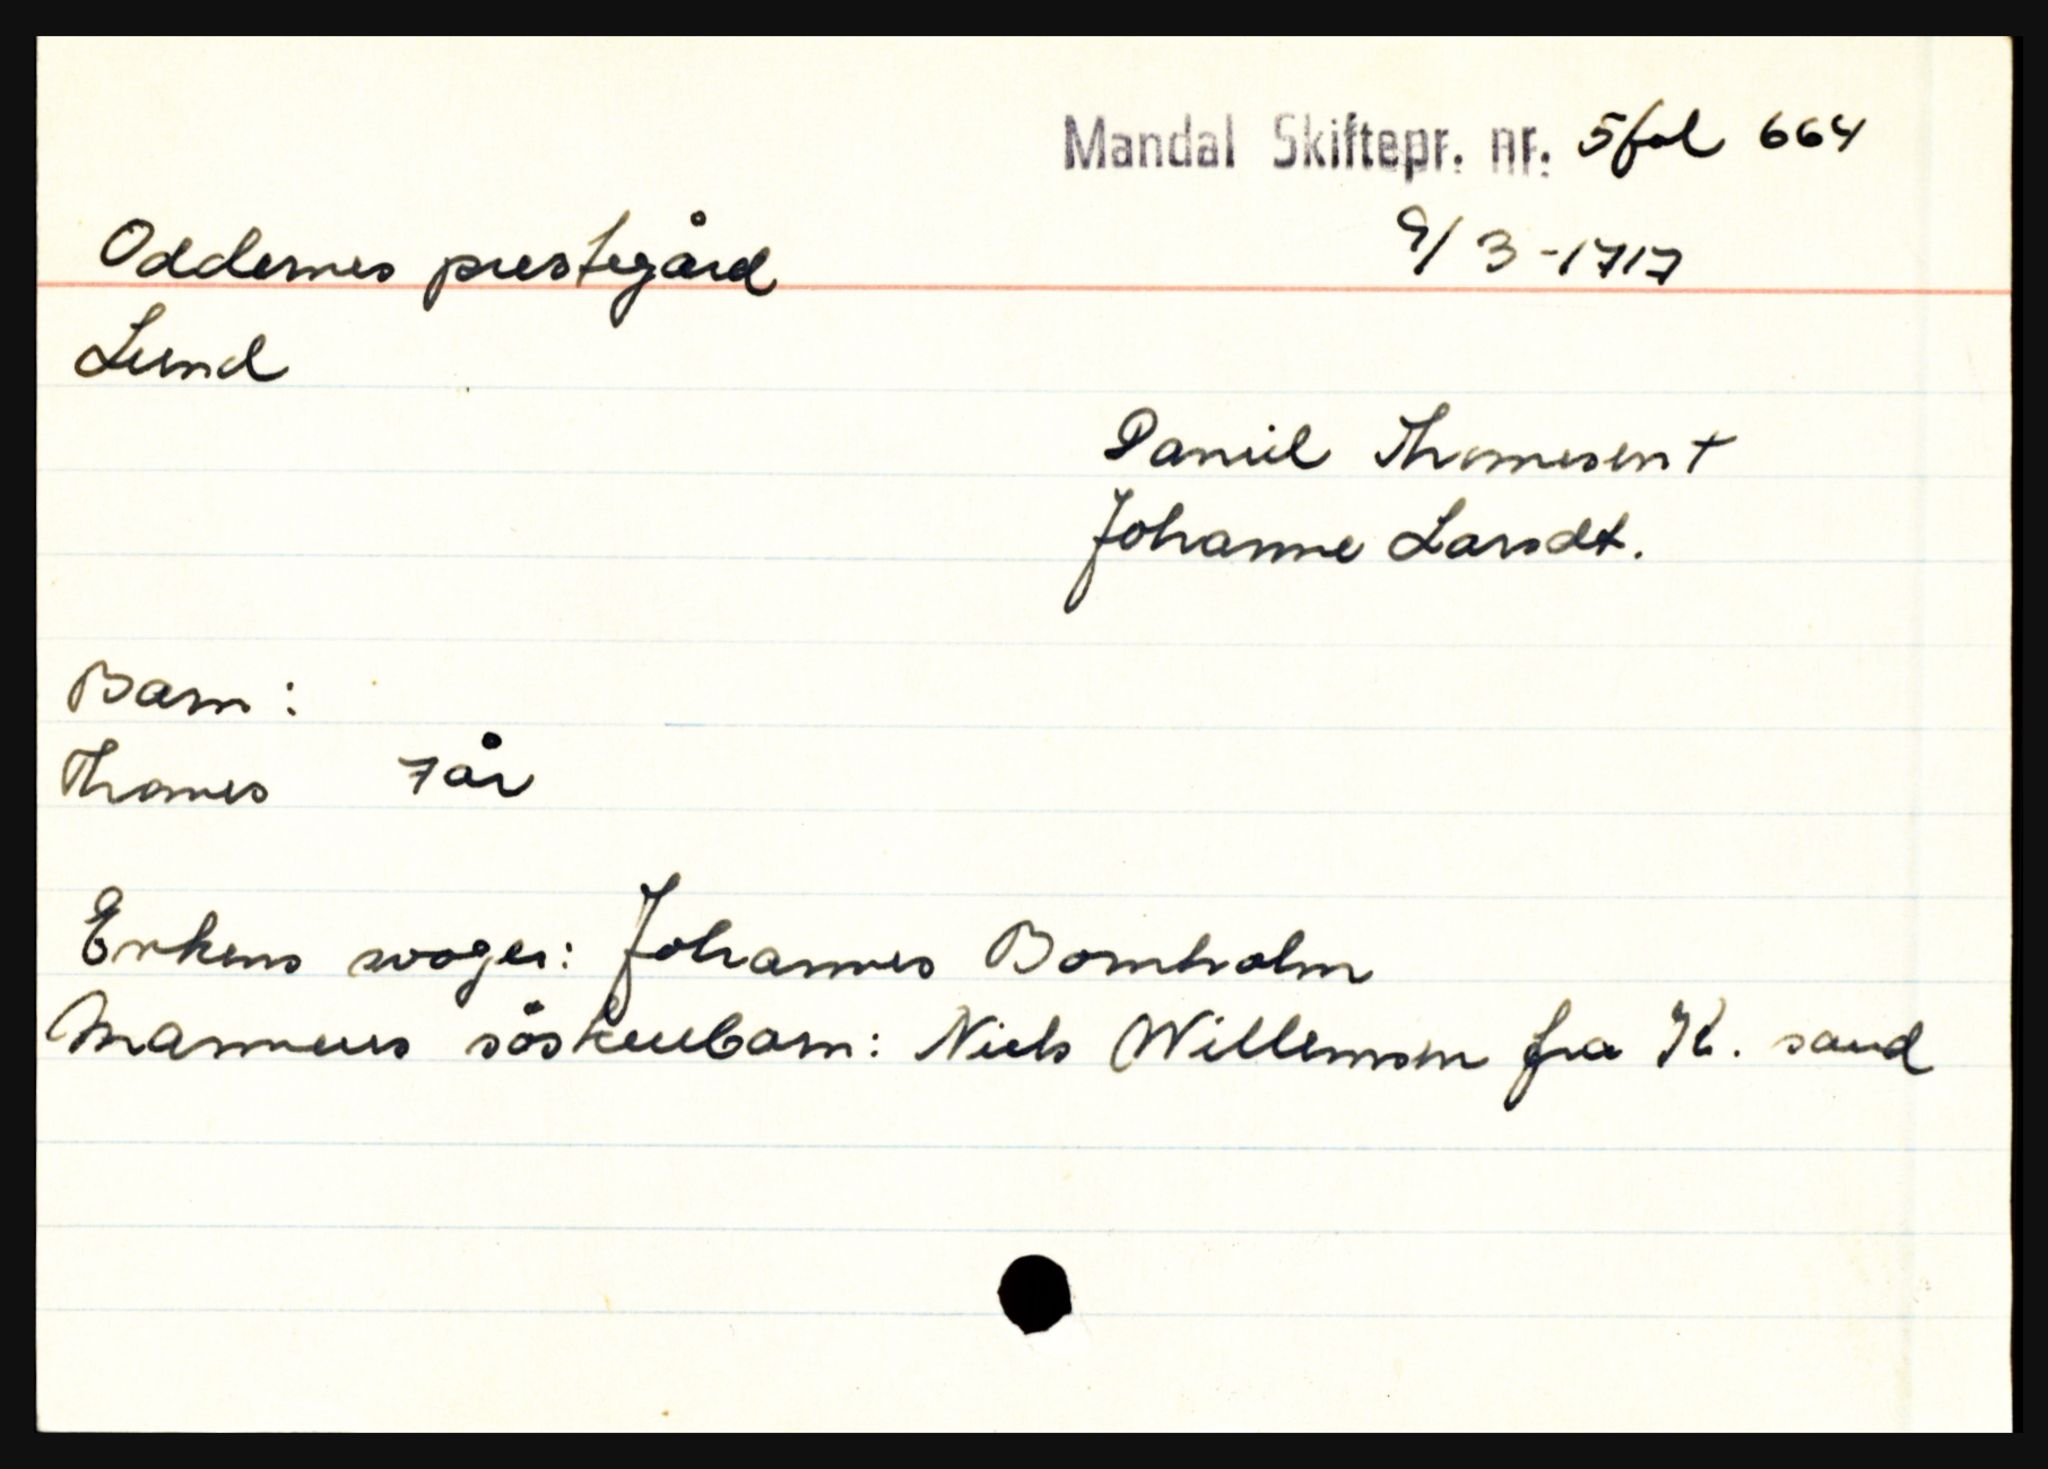 Mandal Skiftepr. nr. 5 fol 664
9/3 - 1717
Oddernes prestegård
Lund
Daniel Thomesen +
Johanne Larsdt.
Barn:
Thomes 7 år
Enkens svoger: Johannes Bornholm
Mannens söskenbarn: Niels Willemsen fra K. sand